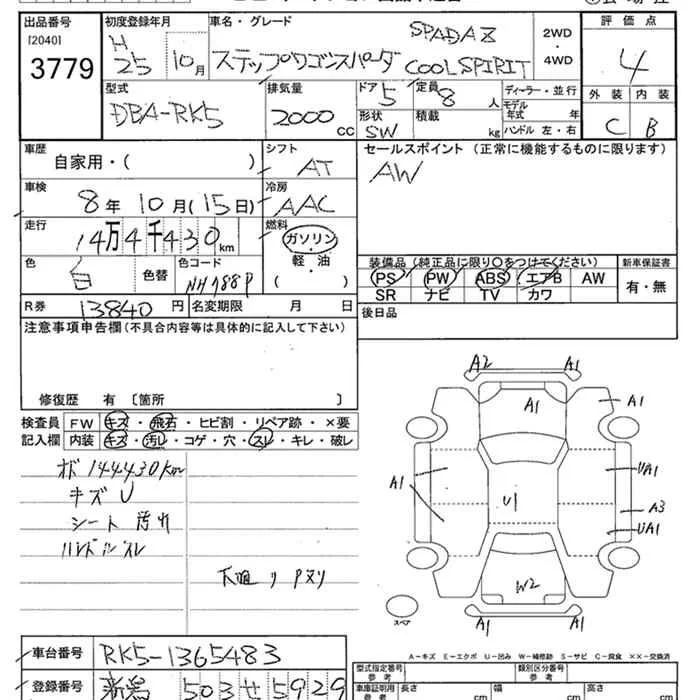 出品番号 初度登録年月 車名・グレード 評価点
[2040] H SPADA Z 2WD
3779 25 10月 ステップワゴンスパーダ COOLSPIRIT ・ 4
4WD
型式 排気量 ドア 定員 ディーラー・並行 外装 内装
DBA-RK5 2000 CC 5 8 人 モデル年式 年 C B
形状 積載
SW kg ハンドル 左・右
車歴 シフト セールスポイント (正常に機能するものに限ります)
自家用・( ) AT AW
車検 冷房
8年 10月(15日) AAC
走行 燃料
14万4千430km ガソリン
色 色コード 軽・油
白 色替 NH788P ( )
装備品 (純正品に限り○をつけてください) 新車保証書
PS PW ABS エアB AW 有・無
SR ナビ TV カワ
R券 13840円 名変期限 月 日 後日品
注意事項申告欄 (不具合内容等は具体的に記入して下さい)
修復歴 有 〔箇所 〕
検査員 FW キズ・飛石・ヒビ割・リペア跡・×要
記入欄 内装 キズ・汚レ・コゲ・穴・スレ・キレ・破レ
144430km
キズ U
シート 汚れ
ハンドルスレ
A2 A1
A1 A1
A1 UA1
U1 A3
UA1
W2
A1 A1
スペア
A-キズ E-エクボ U-凹み W-補修跡 S-サビ C-腐食 ××-交換済
車台番号 RK5-1365483
登録番号 新潟 503 せ 5929
型式指定番号 参考 類別区分番号 参考
車庫証明用 参考 長さ cm 幅 cm 高さ cm